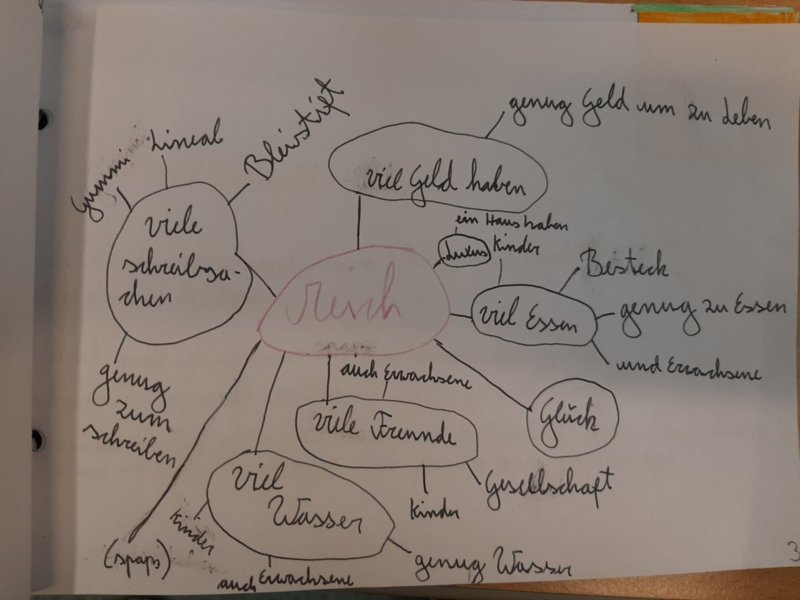 genug Geld um zu Leben
viel Geld haben
Gummi
Lineal
Bleistift
viele
schreibsa-
chen
genug
zum
schreiben
Reich
ein Haus haben
Luxus
Kinder
viel Essen
Besteck
genug zu Essen
und Erwachsene
Glück
auch Erwachsene
viele Freunde
Kinder
Gesellschaft
viel
Wasser
Kinder
auch Erwachsene
genug Wasser
(spaps)
3